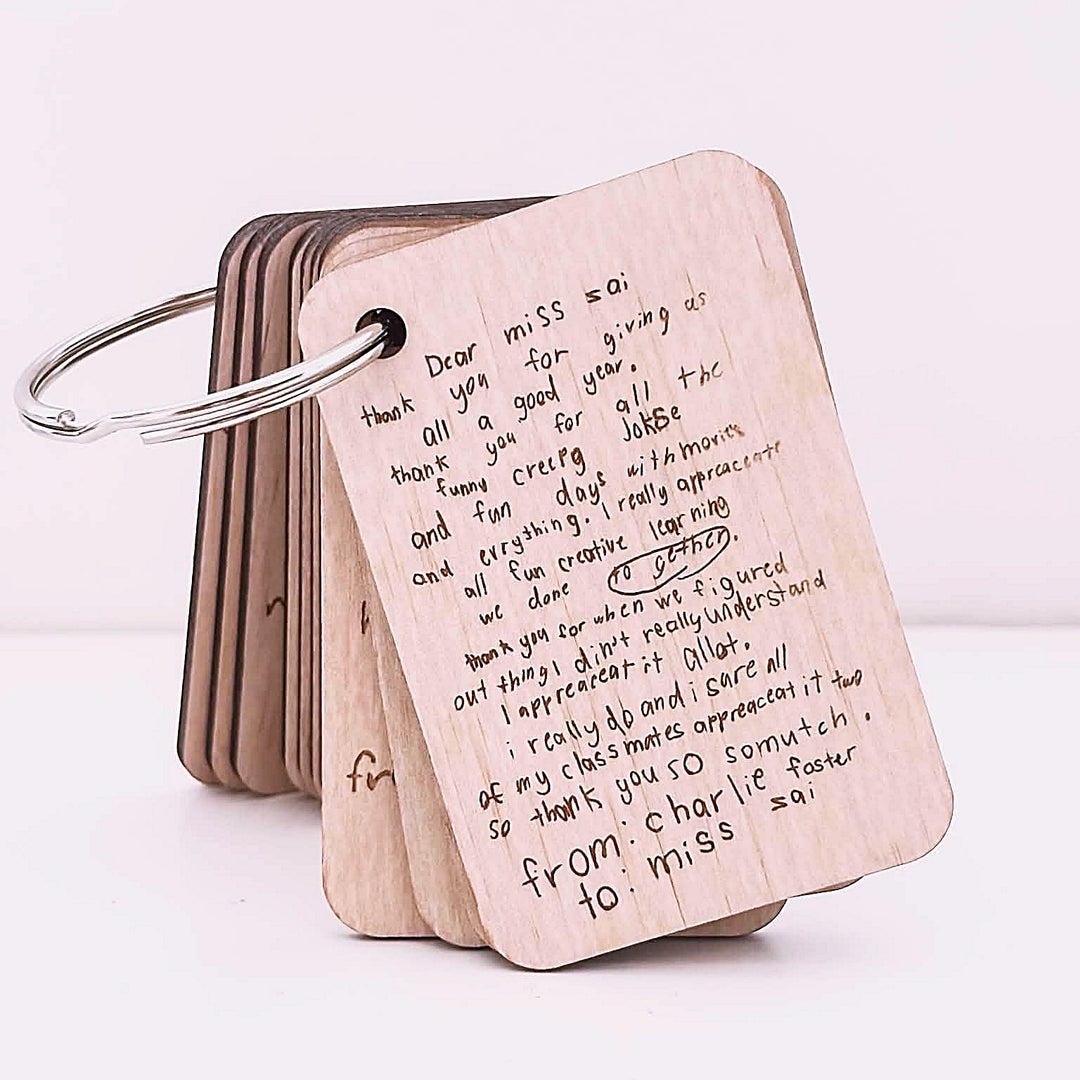 Dear miss sai
thank you for giving us
all a good year.
thank you for all the
funny creepg jokse
and fun days with movies
and evrything. I really appreaceate
all fun creative learning
we done to gether.
thank you for when we figured
out thing I din't really understand
I appreaceat it allot.
i really do and i sure all
of my classmates appreaceat it two
so thank you so somutch.
from: charlie foster
to: miss sai
fr